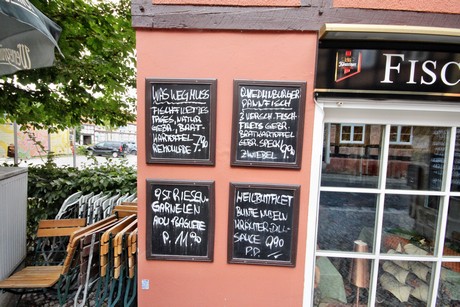 WAS WEG MUSS
FISCHFILETIES
TAGES, NATUR
GEBR., BRAT-
KARTOFFEL
REMOULADE 7,90
QUEDLINBURGER
PANNFISCH
3 VERSCH. FISCH-
FILETS GEBR.
BRATKARTOFFEL
GEBR. SPECK
ZWIEBEL 9,90
9 ST RIESEN-
GARNELEN
AIOLI BAGUETTE
P. 11,90
HEILBUTTFILET
BUNTE NUDELN
KRÄUTER-DILL-
SAUCE 9,90
P.P.
FISC